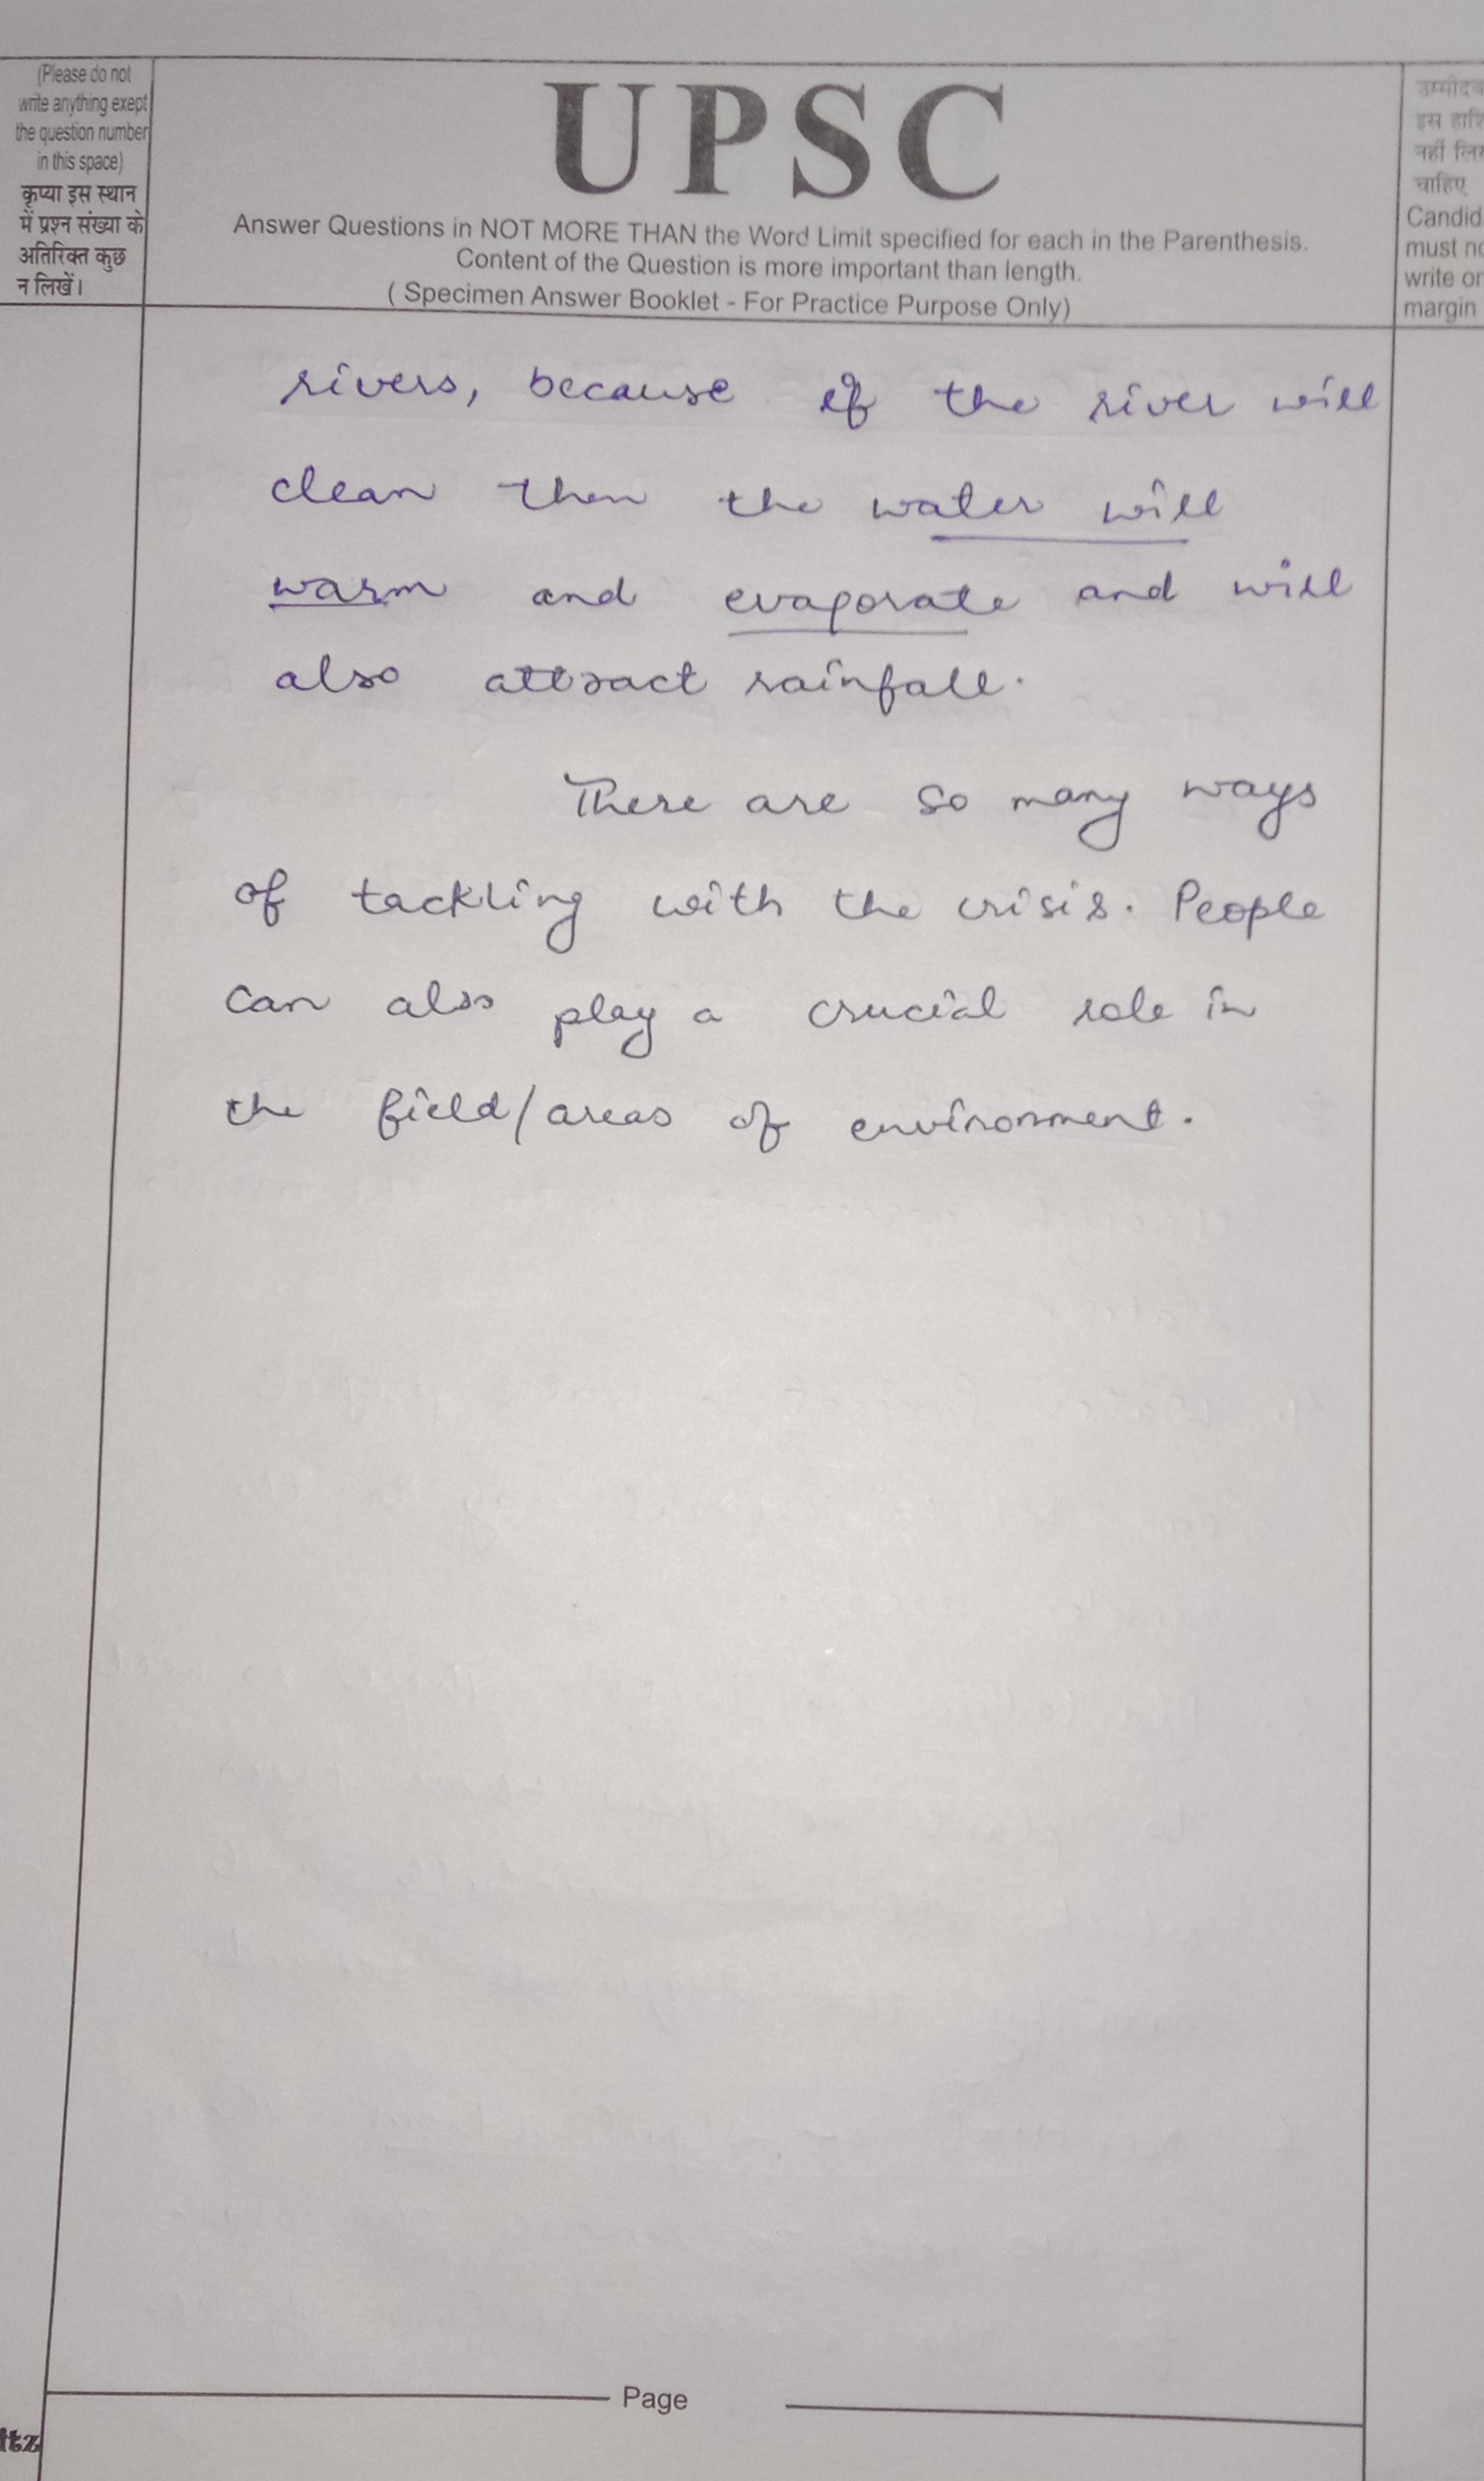 (Please do not
write anything exept
the question number
in this space)
कृप्या इस स्थान
में प्रश्न संख्या के
अतिरिक्त कुछ
न लिखें।
UPSC
Answer Questions in NOT MORE THAN the Word Limit specified for each in the Parenthesis.
Content of the Question is more important than length.
( Specimen Answer Booklet - For Practice Purpose Only)
उम्मीदव
इस हाशि
नहीं लिख
चाहिए
Candid
must no
write or
margin
rivers, because if the river will
clean then the water will
warm and evaporate and will
also attract rainfall.
There are so many ways
of tackling with the crisis. People
can also play a crucial role in
the field/areas of environment.
Page
itz